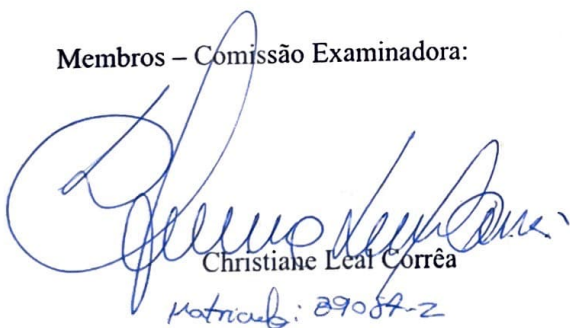 Membros – Comissão Examinadora:
Christiane Leal Corrêa
Matricula: